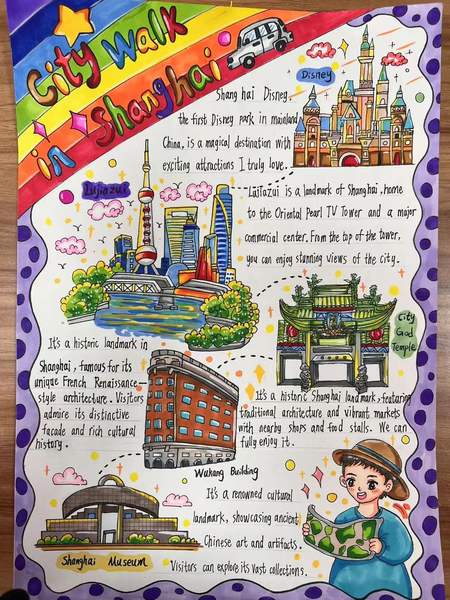 City Walk
in Shanghai
Disney
Shang hai Disney,
the first Disney park in mainland
China, is a magical destination with
exciting attractions I truly love.
Lujiazui
Lujiazui is a landmark of Shanghai, home
to the Oriental Pearl TV Tower and a major
commercial center. From the top of the tower,
you can enjoy stunning views of the city.
City
God
Temple
It's a historic landmark in
Shanghai, famous for its
unique French Renaissance-
style architecture. Visitors
admire its distinctive
facade and rich cultural
history.
Wukang Building
It's a historic Shanghai landmark, featuring
traditional architecture and vibrant markets
with nearby shops and food stalls. We can
fully enjoy it.
It's a renowned cultural
landmark, showcasing ancient
Chinese art and artifacts.
Visitors can explore its vast collections.
Shanghai Museum